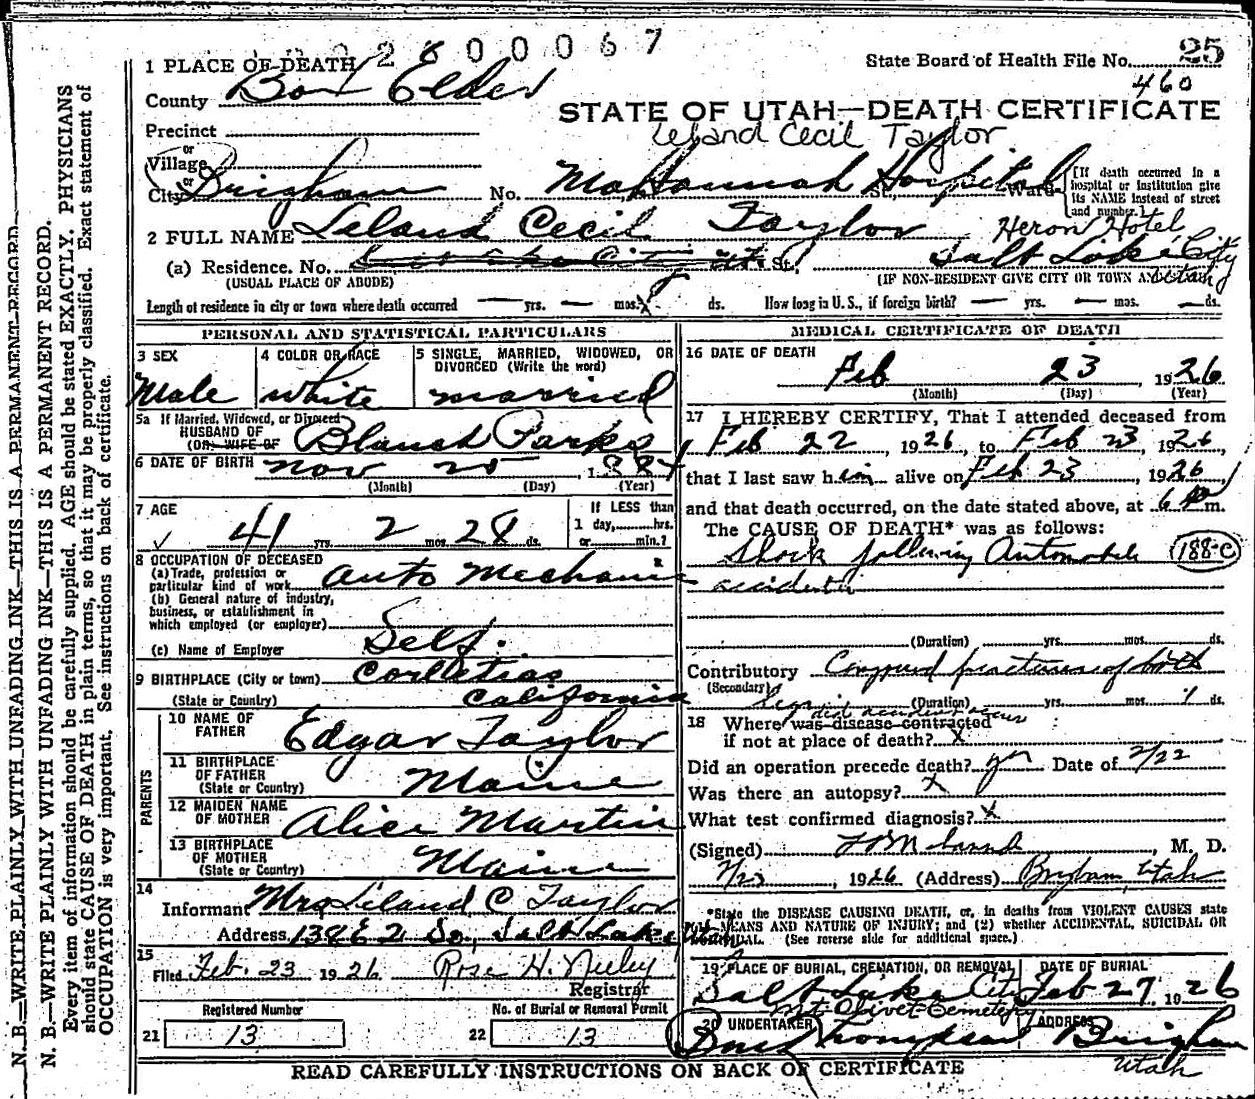 2600067
State Board of Health File No. 25
460
1 PLACE OF DEATH
County Box Elder
STATE OF UTAH—DEATH CERTIFICATE
Leland Cecil Taylor
Precinct
or
Village
or
City Brigham No. Hospital St., Ward
(If death occurred in a hospital or institution give its NAME instead of street and number.)
2 FULL NAME Leland Cecil Taylor
Heron Hotel
(a) Residence. No. Salt Lake City Ut. St., Salt Lake City Utah
(USUAL PLACE OF ABODE) (IF NON-RESIDENT GIVE CITY OR TOWN AND STATE)
Length of residence in city or town where death occurred — yrs. — mos. ds. How long in U.S., if foreign birth? — yrs. — mos. — ds.
PERSONAL AND STATISTICAL PARTICULARS
3 SEX 4 COLOR OR RACE 5 SINGLE, MARRIED, WIDOWED, OR DIVORCED (Write the word)
Male white married
5a If Married, Widowed, or Divorced
HUSBAND OF
(OR) WIFE OF Blanch Parks
6 DATE OF BIRTH Nov 25 1884
(Month) (Day) (Year)
7 AGE If LESS than
1 day, hrs.
41 yrs. 2 mos. 28 ds. or min.?
8 OCCUPATION OF DECEASED
(a) Trade, profession or
particular kind of work Auto Mechanic
(b) General nature of industry,
business, or establishment in
which employed (or employer)
(c) Name of Employer Self.
9 BIRTHPLACE (City or town)
(State or Country) California
PARENTS
10 NAME OF
FATHER Edgar Taylor
11 BIRTHPLACE
OF FATHER
(State or Country) Maine
12 MAIDEN NAME
OF MOTHER Alice Martin
13 BIRTHPLACE
OF MOTHER
(State or Country) Maine
14
Informant Mrs Leland C Taylor
Address 138 E 2 So, Salt Lake
15
Filed Feb. 23 1926 Rose H. Neeley
Registrar
Registered Number No. of Burial or Removal Permit
21 13 22 13
MEDICAL CERTIFICATE OF DEATH
16 DATE OF DEATH
Feb 23, 1926
(Month) (Day) (Year)
17 I HEREBY CERTIFY, That I attended deceased from
Feb 22 1926, to Feb 23, 1926
that I last saw him alive on Feb 23, 1926
and that death occurred, on the date stated above, at 6 m.
The CAUSE OF DEATH* was as follows:
Shock following Automobile 188-c
accident
(Duration) yrs. mos. ds.
Contributory Compound fractures of both
(Secondary) legs (Duration) yrs. mos. 1 ds.
did accident occur
18 Where was disease contracted
if not at place of death? X
Did an operation precede death? yes Date of 2/22
Was there an autopsy? X
What test confirmed diagnosis? X
(Signed) , M. D.
2/23, 1926 (Address) Brigham, Utah
*State the DISEASE CAUSING DEATH, or, in deaths from VIOLENT CAUSES state
MEANS AND NATURE OF INJURY; and (2) whether ACCIDENTAL, SUICIDAL OR
HOMICIDAL. (See reverse side for additional space.)
19 PLACE OF BURIAL, CREMATION, OR REMOVAL DATE OF BURIAL
Salt Lake City Feb 27, 1926
Mt Olivet Cemetery
20 UNDERTAKER ADDRESS
Thompson Brigham
Utah
READ CAREFULLY INSTRUCTIONS ON BACK OF CERTIFICATE
N. B.—WRITE PLAINLY WITH UNFADING INK—THIS IS A PERMANENT RECORD
N. B.—WRITE PLAINLY WITH UNFADING INK—THIS IS A PERMANENT RECORD.
Every item of information should be carefully supplied. AGE should be stated EXACTLY. PHYSICIANS
should state CAUSE OF DEATH in plain terms, so that it may be properly classified. Exact statement of
OCCUPATION is very important. See instructions on back of certificate.